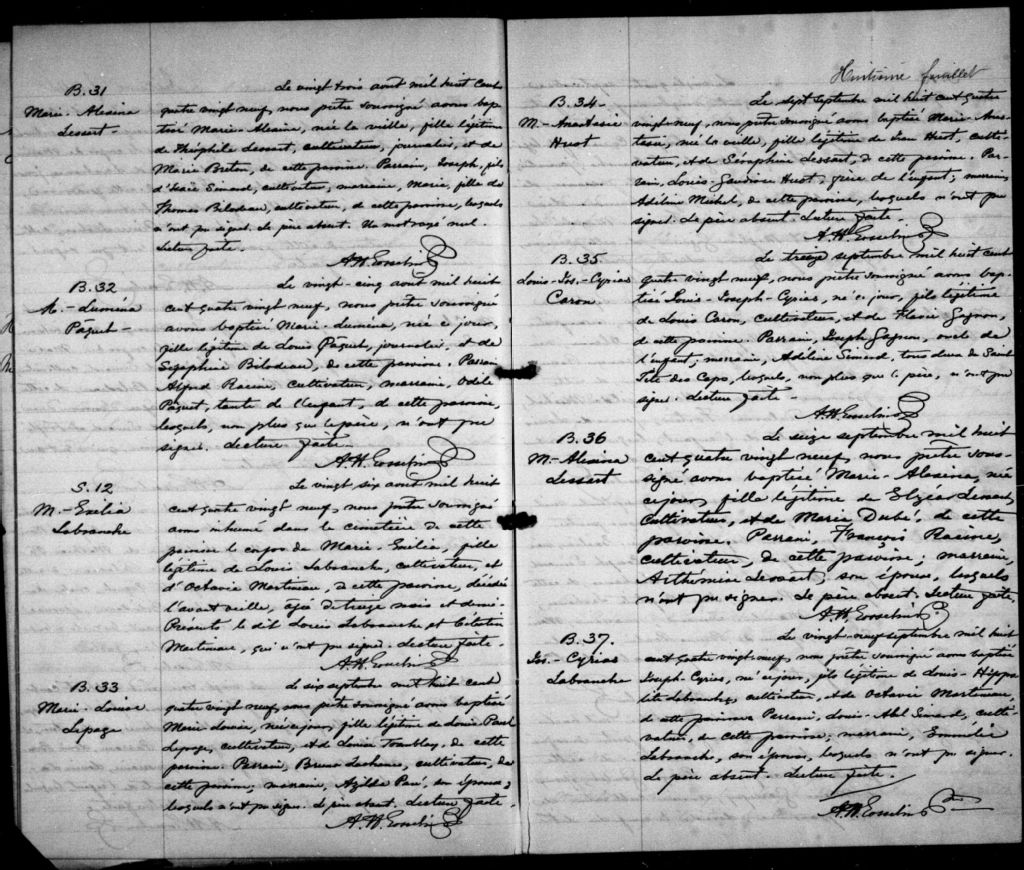 B.31
Marie-Alvaina
Lessart-
Le vingt trois août mil huit cent
quatre vingt neuf, nous prêtre soussigné avons bap
tisé Marie-Alvaine, née la veille, fille légitime
de Théophile Lessart, cultivateur, journalier, et de
Marie Breton, de cette paroisse. Parrain, Joseph, fils
d'Isaïe Simard, cultivateur, marraine, Marie, fille de
Thomas Bilodeau, cultivateur, de cette paroisse, lesquels
n'ont pu signer. Le père absent. Un mot rayé nul.
Lecture faite.
A.H. Gosselin
B.32
M.-Luména
Pâquet-
Le vingt-cinq août mil huit
cent quatre vingt neuf, nous prêtre soussigné
avons baptisé Marie-Luména, née ce jour,
fille légitime de Louis Pâquet, journalier, et de
Séraphine Bilodeau, de cette paroisse. Parrain
Alfred Racine, cultivateur, marraine, Odile
Pâquet, tante de l'enfant, de cette paroisse,
lesquels, non plus que le père, n'ont pu
signer. Lecture faite-
A.H. Gosselin
S.12
M.-Emilia
Labranche
Le vingt six août mil huit
cent quatre vingt neuf, nous prêtre soussigné
avons inhumé dans le cimetière de cette
paroisse le corps de Marie-Emilia, fille
légitime de Louis Labranche, cultivateur, et
d'Octavie Martineau, de cette paroisse, décédée
l'avant veille, agée de treize mois et demi-
Présents le dit Louis Labranche et
Martineau, qui n'ont pu signer. Lecture faite.
A.H. Gosselin
B.33
Marie-Louise
Lepage
Le six septembre mil huit cent
quatre vingt neuf, nous prêtre soussigné avons baptisé
Marie Louise, née ce jour, fille légitime de Louis Paul
Lepage, cultivateur, et de Louise Tremblay, de cette
paroisse. Parrain, Bruno Lachance, cultivateur, de
cette paroisse, marraine, Azilda Paré, son épouse,
lesquels n'ont pu signer. Le père absent. Lecture faite.
A.H. Gosselin
Huitième feuillet
B.34-
M.-Anastasie
Huot
Le sept septembre mil huit cent quatre
vingt-neuf, nous prêtre soussigné avons baptisé Marie-Anas-
tasie, née la veille, fille légitime de Jean Huot, culti-
vateur, et de Séraphine Lessart, de cette paroisse. Par-
rain, Louis-Gaudiose Huot, frère de l'enfant; marraine,
Adéline Michel, de cette paroisse, lesquels n'ont pu
signer. Le père absent. Lecture faite.
A.H. Gosselin
B.35
Louis-Jos.-Cyrias
Caron.
Le treize septembre mil huit cent
quatre vingt neuf, nous prêtre soussigné avons bap-
tisé Louis-Joseph-Cyrias, né ce jour, fils légitime
de Louis Caron, cultivateur, et de Flavie Gagnon,
de cette paroisse. Parrain, Joseph Gagnon, oncle de
l'enfant; marraine, Adélina Simard, tous deux de Saint
Tite des Caps, lesquels, non plus que le père, n'ont pu
signer. Lecture faite-
A.H. Gosselin
B.36
M.-Alvaina
Lessart
Le seize septembre mil huit
cent quatre vingt neuf, nous prêtre sous-
signé avons baptisé Marie-Alvaina, née
ce jour, fille légitime de Elzéar Lessart,
cultivateur, et de Marie Dubé, de cette
paroisse. Parrain, François Racine,
cultivateur, de cette paroisse; marraine,
Arthémise Lessart, son épouse, lesquels
n'ont pu signer. Le père absent. Lecture faite.
A.H. Gosselin
B.37.
Jos.-Cyrias
Labranche
Le vingt-neuf septembre mil huit
cent quatre vingt-neuf, nous prêtre soussigné avons baptisé
Joseph-Cyrias, né ce jour, fils légitime de Louis-Hippo
lite Labranche, cultivateur, et de Octavie Martineau,
de cette paroisse. Parrain, Louis-Abel Simard, culti-
vateur, de cette paroisse; marraine, Emmélie
Labranche, son épouse, lesquels n'ont pu signer.
Le père absent. Lecture faite.
A.H. Gosselin Ptre